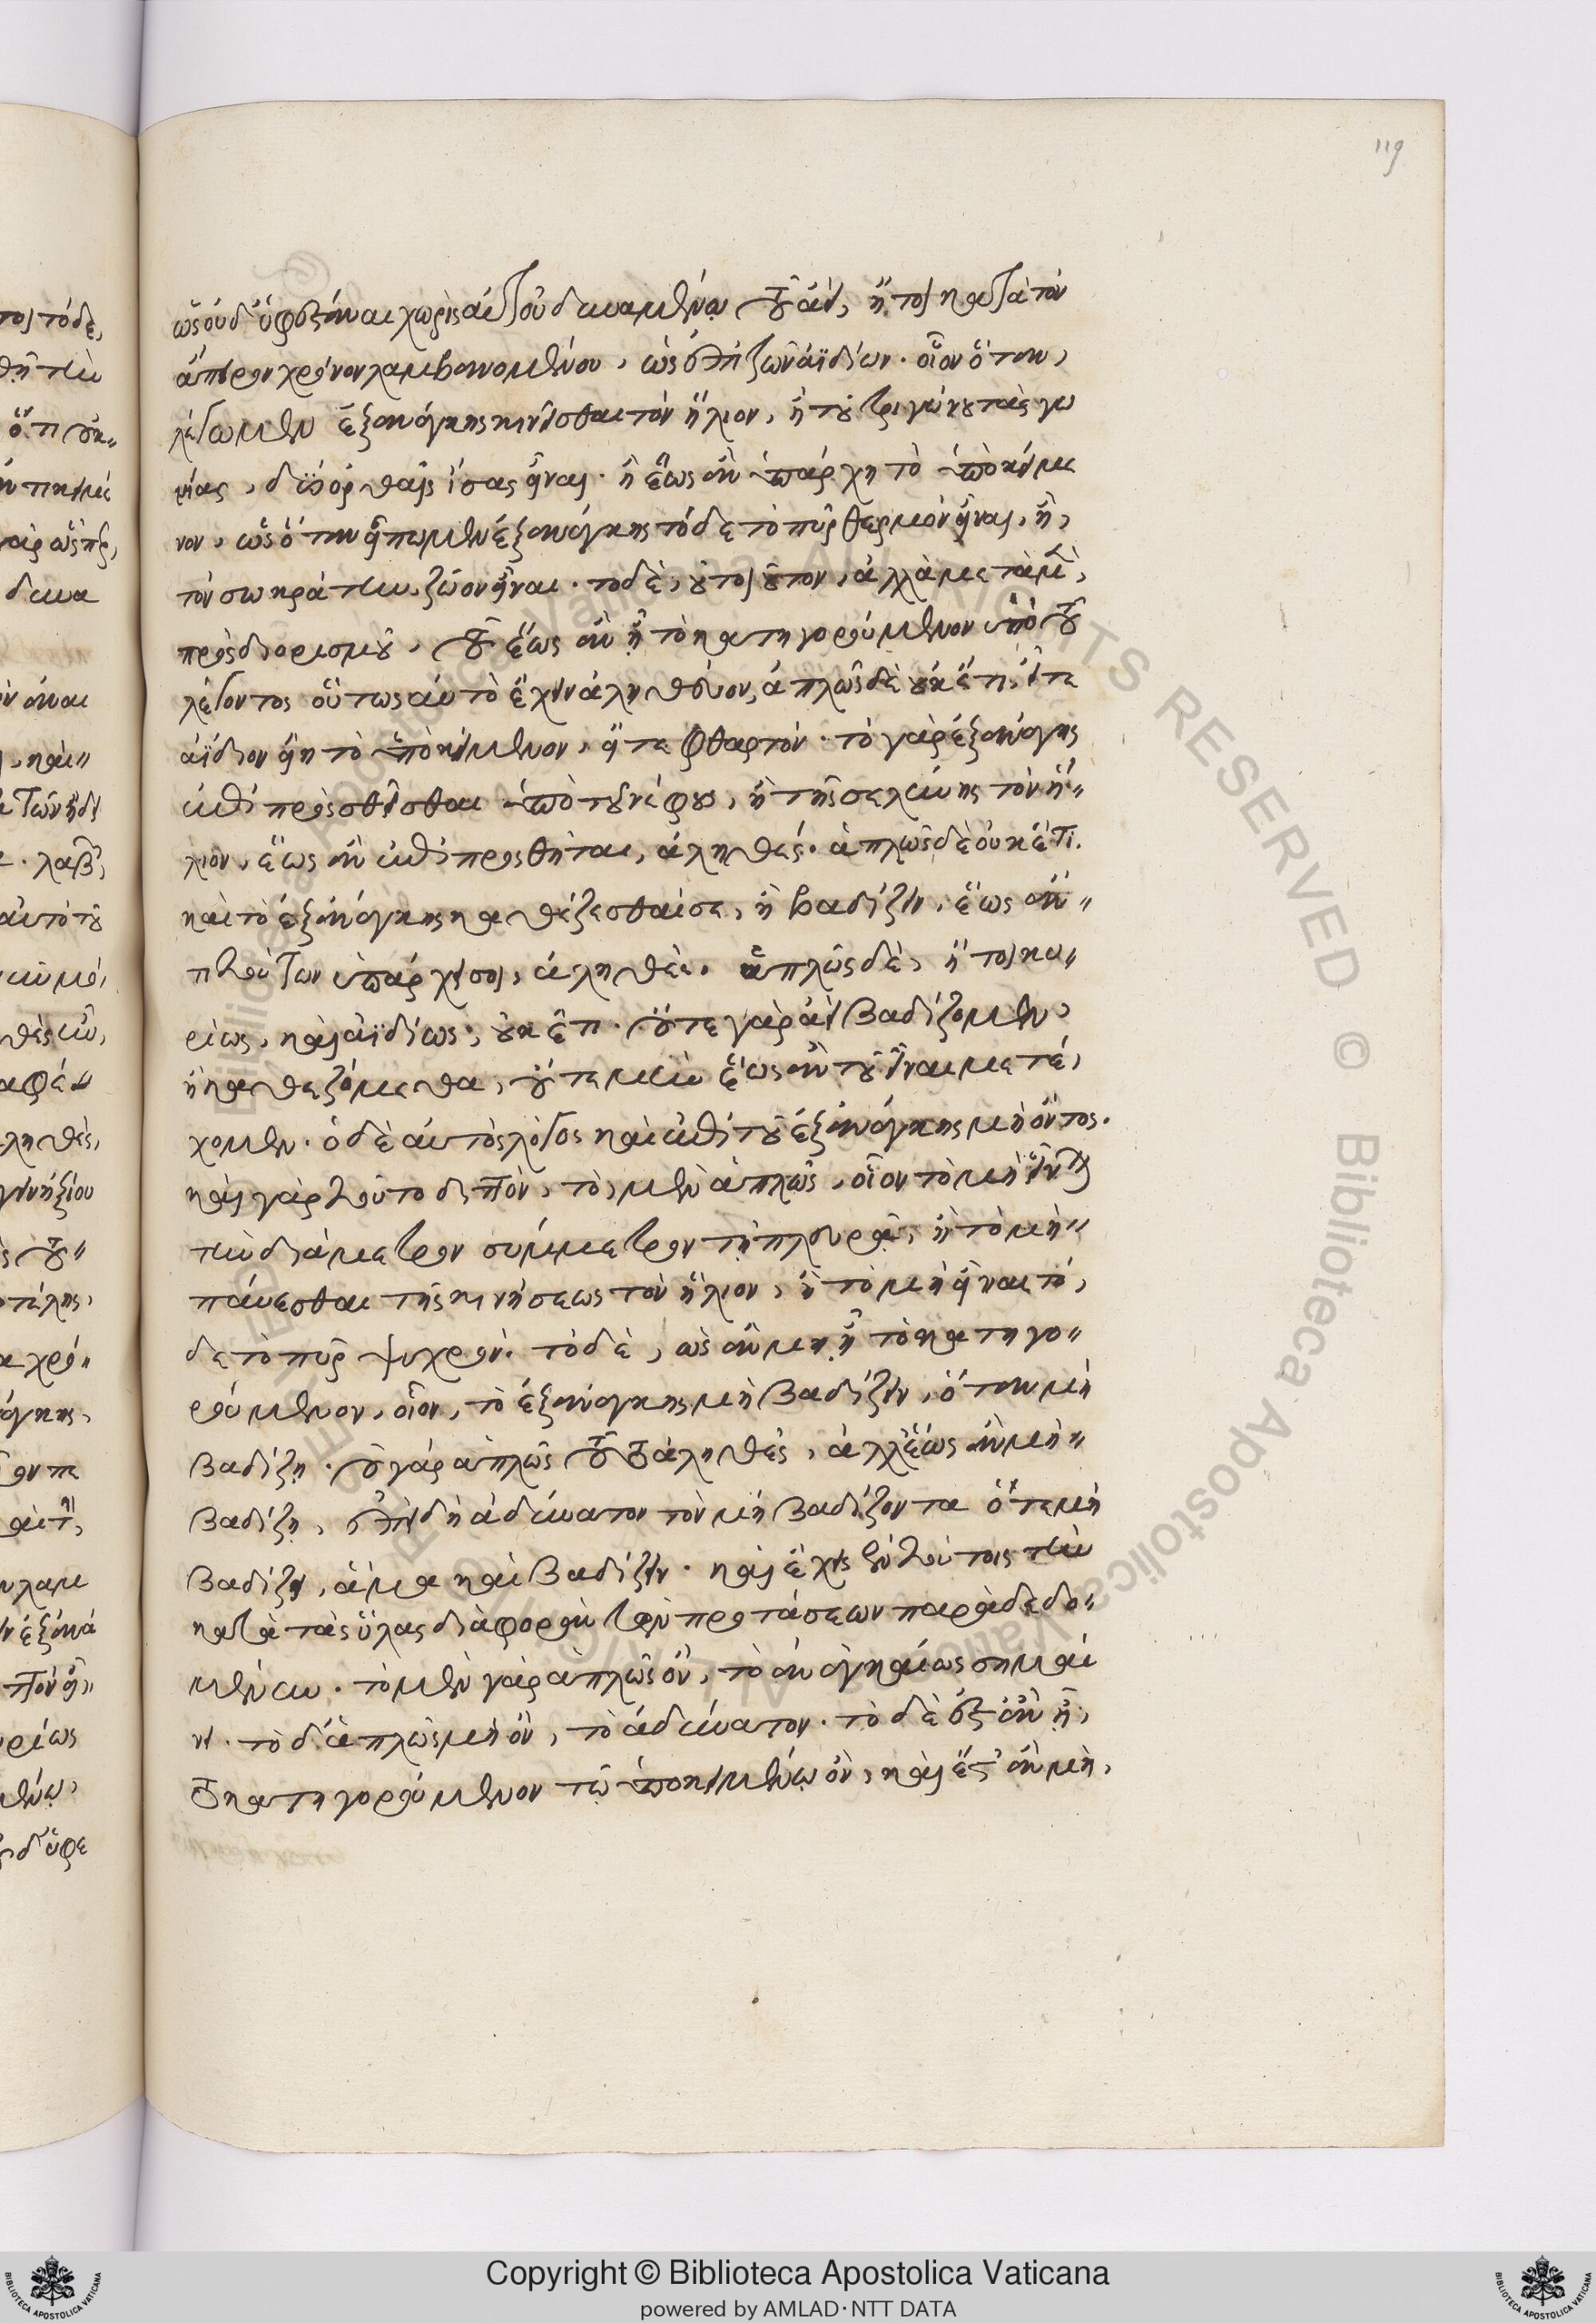 119
ὡς οὐδ' ὑφεστάναι χωρὶς αὐτοῦ δυναμένῳ τοῦ ἀεὶ, ἤτοι κατὰ τὸν
ἄπειρον χρόνον λαμβανομένου, ὡς ἐπὶ τῶν ἀϊδίων. οἷον ὅταν,
λέγωμεν ἐξανάγκης κινεῖσθαι τὸν ἥλιον, ἢ τοῦ τριγώνου τὰς γω
νίας, δυσὶν ὀρθαῖς ἴσας εἶναι. ἢ ἕως ἂν ὑπάρχη τὸ ὑποκείμε
νον, ὡς ὅταν εἴπωμεν ἐξανάγκης τόδε τὸ πῦρ θερμὸν εἶναι, ἢ,
τὸν σωκράτην ζῶον εἶναι. τὸ δὲ, οὐ τοιοῦτον, ἀλλὰ μετὰ
προσδιορισμοῦ, τοῦ ἕως ἂν ᾖ τὸ κατηγορούμενον ὑπὸ τοῦ
λέγοντος οὕτως αὐτὸ ἔχειν ἀληθεύον, ἁπλῶς δὲ οὐκέτι, εἴτε
ἀΐδιον εἴη τὸ ὑποκείμενον, εἴτε φθαρτόν. τὸ γὰρ ἐξανάγκης
ἀντιπροσθεῖσθαι ὑπὸ τοῦ νέφους, ἢ τῆς σελήνης τὸν ἥ"
λιον, ἕως ἂν ἀντιπροσθῆται, ἀληθές. ἁπλῶς δὲ οὐκέτι.
καὶ τὸ ἐξανάγκης καθέζεσθαί σε, ἢ βαδίζειν, ἕως ἂν"
τι τούτων ὑπάρχει σοι, ἀληθές. ἁπλῶς δὲ, ἤτοι κυ"
ρίως, καὶ ἀϊδίως, οὐκέτι. οὔτε γὰρ ἀεὶ βαδίζομεν,
ἢ καθεζόμεθα, οὔτε μὴν ἕως ἂν τοῦ εἶναι μετέ,
χομεν. ὁ δὲ αὐτὸς λόγος καὶ ἐπὶ τοῦ ἐξανάγκης μὴ ὄντος.
καὶ γὰρ τοῦτο διττὸν, τὸ, μὲν ἁπλῶς, οἷον τὸ μὴ εἶναι
τὴν διάμετρον σύμμετρον τῇ πλευρᾷ, ἢ τὸ μὴ"
παύεσθαι τῆς κινήσεως τὸν ἥλιον, ἢ τὸ μὴ εἶναι τό,
δε τὸ πῦρ ψυχρόν. τὸ δὲ, ὡς ἂν μὴ ᾖ τὸ κατηγο"
ρούμενον, οἷον, τὸ ἐξανάγκης μὴ βαδίζειν, ὅταν μὴ
βαδίζῃ. οὐ γὰρ ἁπλῶς τοῦτο ἀληθές, ἀλλ' ἕως ἂν μὴ"
βαδίζῃ, ἐπειδὴ ἀδύνατον τὸν μὴ βαδίζοντα ὅτε μὴ
βαδίζει, ἅμα καὶ βαδίζειν. καὶ ἔχεις ἐν τούτοις τὴν
κατὰ τὰς ὕλας διαφορὰν τῶν προτάσεων παραδεδο"
μένην. τὸ μὲν γὰρ ἁπλῶς ὂν, τὸ ἀναγκαίως σημαί
νει. τὸ δ' ἁπλῶς μὴ ὂν, τὸ ἀδύνατον. τὸ δὲ ἔστ' ἂν ᾖ,
τὸ κατηγορούμενον τῷ ὑποκειμένῳ ὂν, καὶ ἔστ' ἂν μὴ,
Copyright © Biblioteca Apostolica Vaticana
powered by AMLAD·NTT DATA